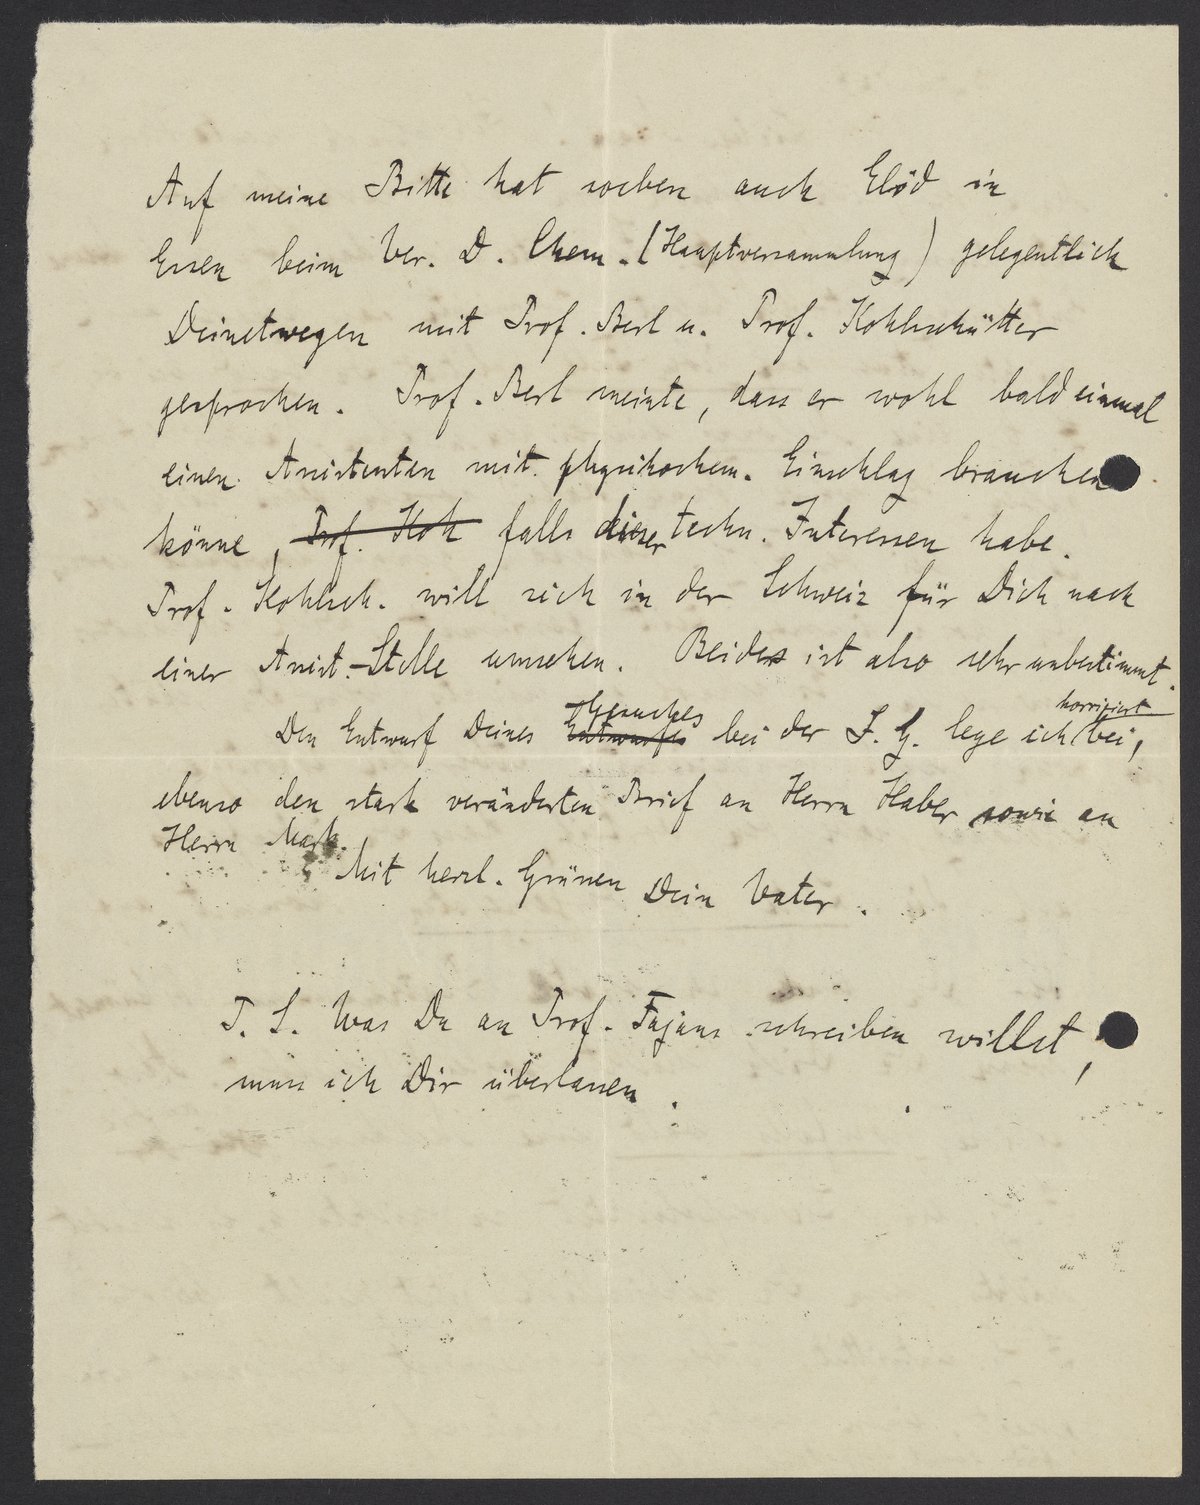 Auf meine Bitte hat soeben auch Elöd in
Essen beim Ver. D. Chem. (Hauptversammlung) gelegentlich
Deinetwegen mit Prof. Berl u. Prof. Kohlschütter
gesprochen. Prof. Berl meinte, dass er wohl bald einmal
einen Assistenten mit physikochem. Einschlag brauchen
könne, Prof. Koh falls dieser techn. Interessen habe.
Prof. Kohlsch. will sich in der Schweiz für Dich nach
einer Assist.-Stelle umsehen. Beides ist also sehr unbestimmt.
Den Entwurf Deines Entwurfes Gesuches bei der I. G. lege ich korrigiert bei,
ebenso den stark veränderten Brief an Herrn Haber sowie an
Herrn Mark.
Mit herzl. Grüssen Dein Vater.
P. S. Was Du an Prof. Fajans schreiben willst,
muss ich Dir überlassen.